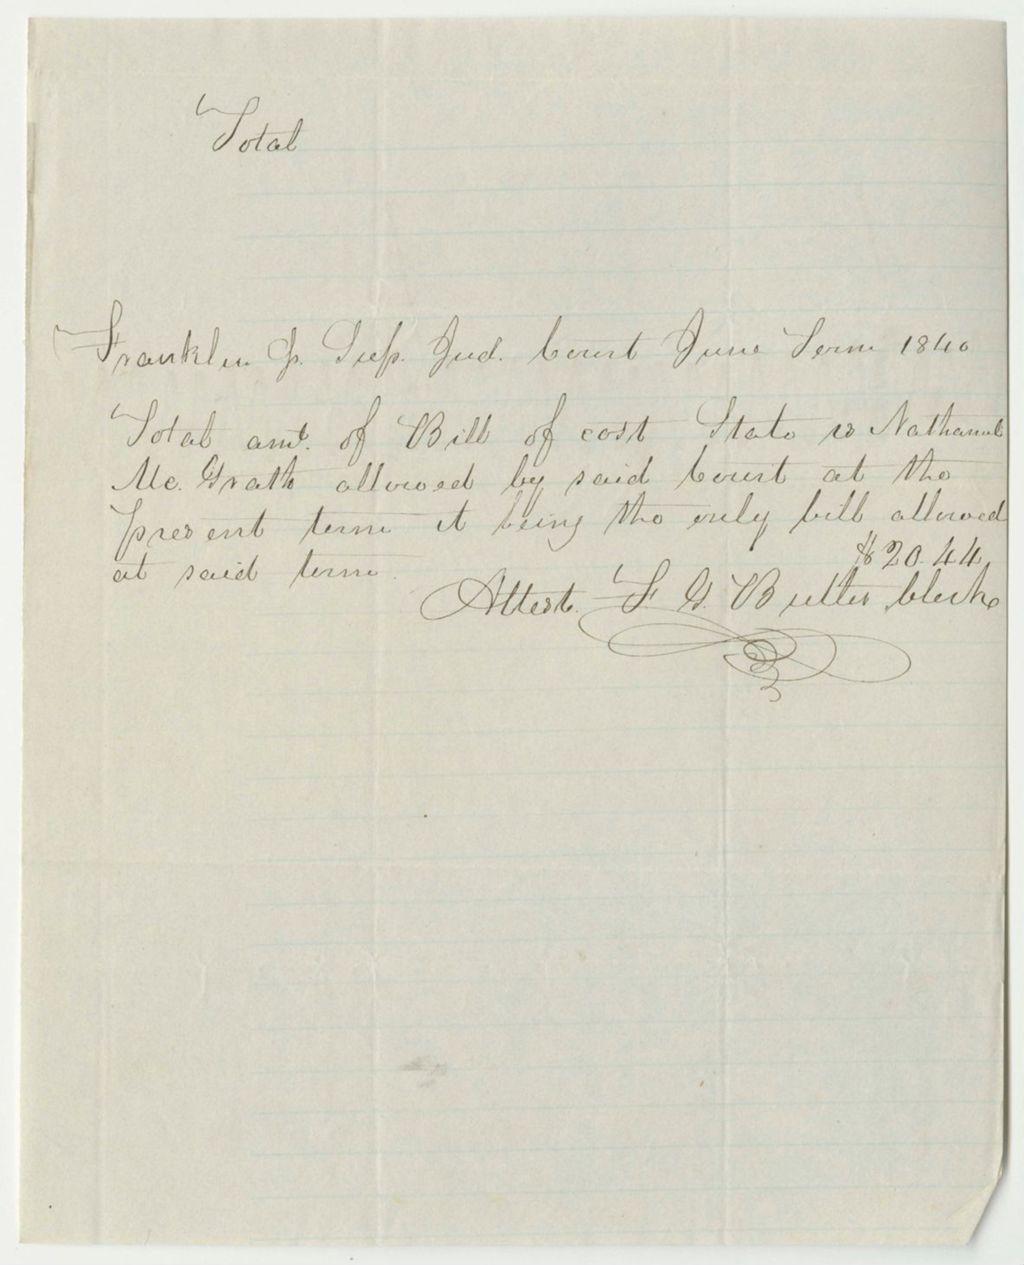 Total
Franklin Js. Sup. Jud. Court June Term 1840
Total amt. of Bill of cost State vs Nathaniel
Mc. Grath allowed by said Court at the
present term it being the only bill allowed
at said term.
$20.44
Attest. F. G. Butler, Clerk